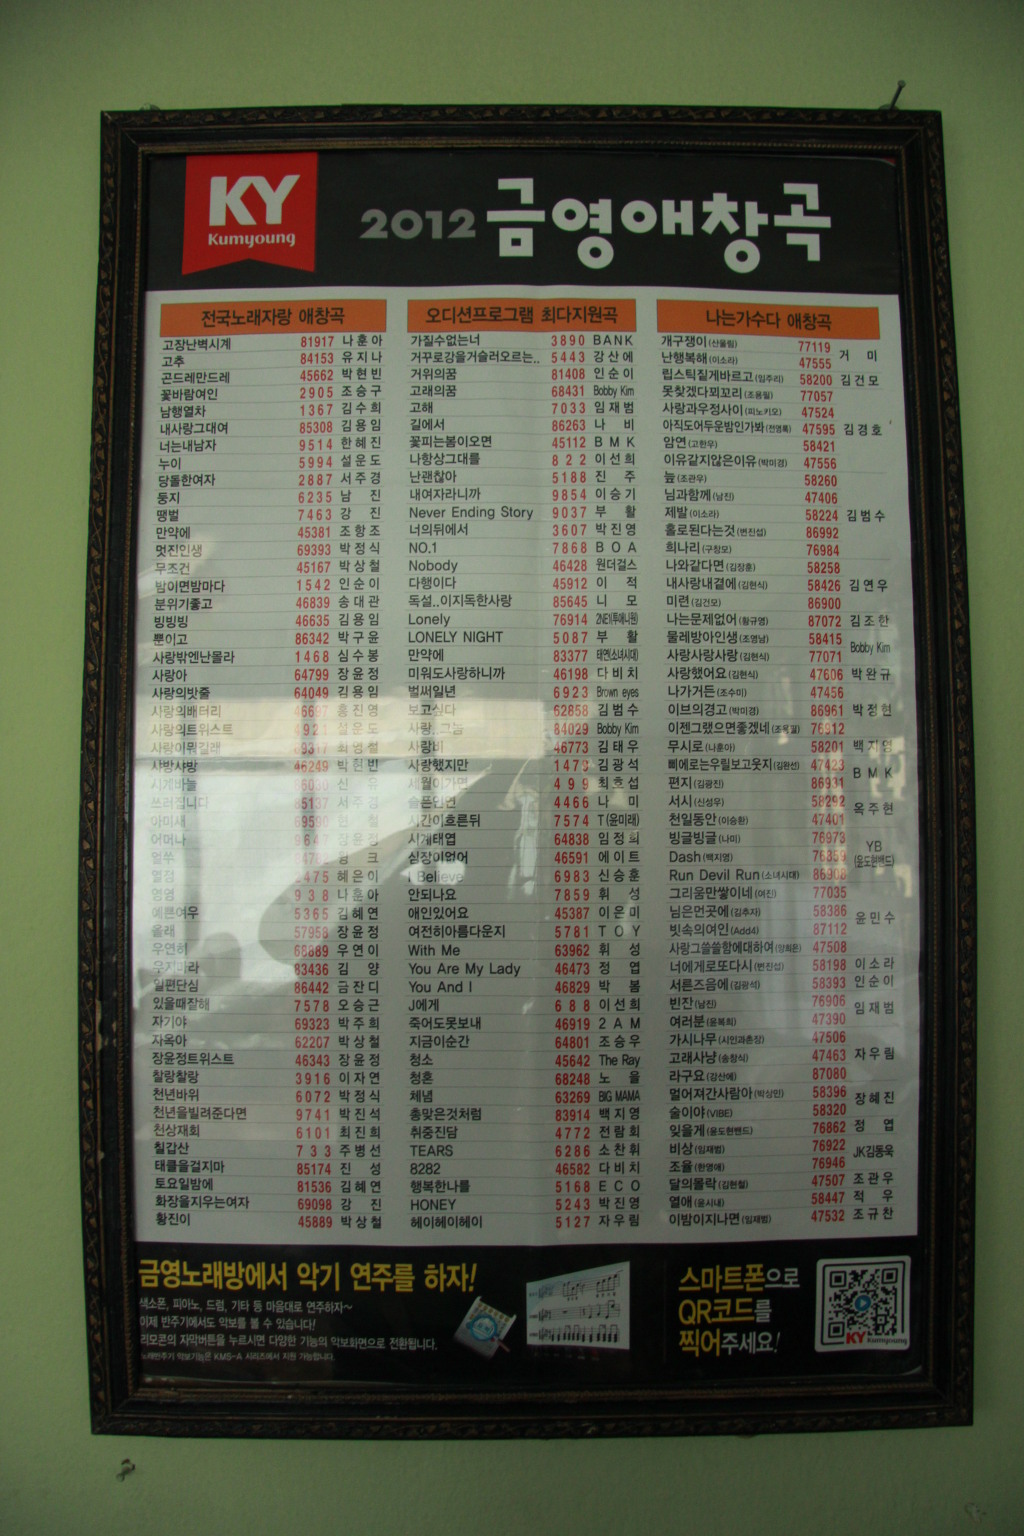 KY
Kumyoung
2012 금영애창곡
전국노래자랑 애창곡
고장난벽시계 81917 나훈아
고추 84153 유지나
곤드레만드레 45662 박현빈
꽃바람여인 2905 조승구
남행열차 1367 김수희
내사랑그대여 85308 김용임
너는내남자 9514 한혜진
누이 5994 설운도
당돌한여자 2887 서주경
둥지 6235 남 진
땡벌 7463 강 진
만약에 45381 조항조
멋진인생 69393 박정식
무조건 45167 박상철
밤이면밤마다 1542 인순이
분위기좋고 46839 송대관
빙빙빙 46635 김용임
뿐이고 86342 박구윤
사랑밖엔난몰라 1468 심수봉
사랑아 64799 장윤정
사랑의밧줄 64049 김용임
사랑의배터리 46697 홍진영
사랑의트위스트 4921 설운도
사랑이뭐길래 89317 최영철
샤방샤방 46249 박현빈
시계바늘 신 유
쓰러집니다 85137 서주경
아미새 69590 현 철
어머나 장윤정
얼쑤 윙 크
열정 2475 혜은이
영영 938 나훈아
예쁜여우 5365 김혜연
올래 57958 장윤정
우연히 68889 우연이
우지마라 83436 김 양
일편단심 86442 금잔디
있을때잘해 7578 오승근
자기야 69323 박주희
자옥아 62207 박상철
장윤정트위스트 46343 장윤정
찰랑찰랑 3916 이자연
천년바위 6072 박정식
천년을빌려준다면 9741 박진석
천상재회 6101 최진희
칠갑산 733 주병선
태클을걸지마 85174 진 성
토요일밤에 81536 김혜연
화장을지우는여자 69098 강 진
황진이 45889 박상철
오디션프로그램 최다지원곡
가질수없는너 3890 BANK
거꾸로강을거슬러오르는.. 5443 강산에
거위의꿈 81408 인순이
고래의꿈 68431 Bobby Kim
고해 7033 임재범
길에서 86263 나 비
꽃피는봄이오면 45112 BMK
나항상그대를 822 이선희
난괜찮아 5188 진 주
내여자라니까 9854 이승기
Never Ending Story 9037 부 활
너의뒤에서 3607 박진영
NO.1 7868 BOA
Nobody 46428 원더걸스
다행이다 45912 이 적
독설..이지독한사랑 85645 니 모
Lonely 76914 2NE1(투애니원)
LONELY NIGHT 5087 부 활
만약에 83377 태연(소녀시대)
미워도사랑하니까 46198 다비치
벌써일년 6923 Brown eyes
보고싶다 62858 김범수
사랑..그놈 84029 Bobby Kim
사랑비 46773 김태우
사랑했지만 1473 김광석
세월이가면 499 최호섭
슬픈인연 4466 나 미
시간이흐른뒤 7574 T(윤미래)
시계태엽 64838 임정희
심장이없어 46591 에이트
I Believe 6983 신승훈
안되나요 7859 휘 성
애인있어요 45387 이은미
여전히아름다운지 5781 TOY
With Me 63962 휘 성
You Are My Lady 46473 정 엽
You And I 46829 박 봄
J에게 688 이선희
죽어도못보내 46919 2AM
지금이순간 64801 조승우
청소 45642 The Ray
청혼 68248 노 을
체념 63269 BIG MAMA
총맞은것처럼 83914 백지영
취중진담 4772 전람회
TEARS 6286 소찬휘
8282 46582 다비치
행복한나를 5168 ECO
HONEY 5243 박진영
헤이헤이헤이 5127 자우림
나는가수다 애창곡
개구쟁이(산울림) 77119
거 미
난행복해(이소라) 47555
립스틱짙게바르고(임주리) 58200 김건모
못찾겠다꾀꼬리(조용필) 77057
사랑과우정사이(피노키오) 47524
아직도어두운밤인가봐(전영록) 47595 김경호
암연(고한우) 58421
이유같지않은이유(박미경) 47556
늪(조관우) 58260
님과함께(남진) 47406
제발(이소라) 58224 김범수
홀로된다는것(변진섭) 86992
희나리(구창모) 76984
나와같다면(김장훈) 58258
내사랑내곁에(김현식) 58426 김연우
미련(김건모) 86900
나는문제없어(황규영) 87072 김조한
물레방아인생(조영남) 58415
Bobby Kim
사랑사랑사랑(김현식) 77071
사랑했어요(김현식) 47606 박완규
나가거든(조수미) 47456
이브의경고(박미경) 86961 박정현
이젠그랬으면좋겠네(조용필) 76912
무시로(나훈아) 58201 백지영
삐에로는우릴보고웃지(김완선) 47423
BMK
편지(김광진) 86931
서시(신성우) 58292
옥주현
천일동안(이승환) 47401
빙글빙글(나미) 76973
YB
(윤도현밴드)
Dash(백지영) 76859
Run Devil Run(소녀시대) 86908
그리움만쌓이네(여진) 77035
님은먼곳에(김추자) 58386
윤민수
빗속의여인(Add4) 87112
사랑그쓸쓸함에대하여(양희은) 47508
너에게로또다시(변진섭) 58198 이소라
서른즈음에(김광석) 58393 인순이
빈잔(남진) 76906
임재범
여러분(윤복희) 47390
가시나무(시인과촌장) 47506
고래사냥(송창식) 47463 자우림
라구요(강산에) 87080
멀어져간사람아(박상민) 58396
장혜진
술이야(VIBE) 58320
잊을게(윤도현밴드) 76862 정 엽
비상(임재범) 76922
JK김동욱
조율(한영애) 76946
달의몰락(김현철) 47507 조관우
열애(윤시내) 58447 적 우
이밤이지나면(임재범) 47532 조규찬
금영노래방에서 악기 연주를 하자!
색소폰, 피아노, 드럼, 기타 등 마음대로 연주하자~
이제 반주기에서도 악보를 볼 수 있습니다!
리모콘의 자막버튼을 누르시면 다양한 기능의 악보화면으로 전환됩니다.
노래반주기 악보기능은 KMS-A 시리즈에서 지원 가능합니다.
스마트폰으로
QR코드를
찍어주세요!
KY Kumyoung